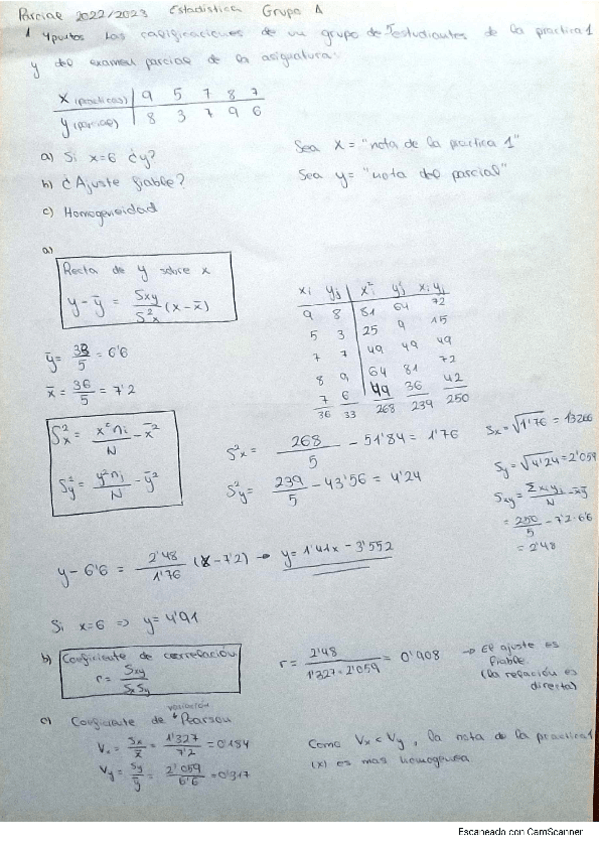 Parcial 2022/2023 Estadística Grupo A
1 4puntos Las calificaciones de un grupo de 5 estudiantes de la practica 1
y del examen parcial de la asignatura:
x (practicas) 9 5 7 8 7
y (parcial) 8 3 7 9 6
a) Si x=6 ¿y?
Sea X = "nota de la practica 1"
b) ¿Ajuste fiable?
Sea y = "nota del parcial"
c) Homogeneidad
a)
Recta de y sobre x
y - ȳ = Sxy / S²x (x - x̄)
xi yj x²i y²j xi yj
9 8 81 64 72
5 3 25 9 15
7 7 49 49 49
8 9 64 81 72
7 6 49 36 42
36 33 268 239 250
ȳ = 33/5 = 6'6
x̄ = 36/5 = 7'2
S²x = x²ni / N - x̄²
S²y = y²nj / N - ȳ²
S²x = 268/5 - 51'84 = 1'76
S²y = 239/5 - 43'56 = 4'24
Sx = √1'76 = 1'3266
Sy = √4'24 = 2'059
Sxy = Σxiyj / N - x̄ȳ
= 250/5 - 7'2·6'6
= 2'48
y - 6'6 = 2'48/1'76 (x - 7'2) → y = 1'41x - 3'552
Si x=6 => y = 4'91
b) Coeficiente de correlación
r = Sxy / SxSy
r = 2'48 / 1'327·2'059 = 0'908 → El ajuste es
fiable.
(la relación es
directa)
c) Coeficiente de variación Pearson
Vx = Sx/x̄ = 1'327/7'2 = 0'184
Vy = Sy/ȳ = 2'059/6'6 = 0'317
Como Vx < Vy, la nota de la practica 1
(x) es mas homogenea
Escaneado con CamScanner